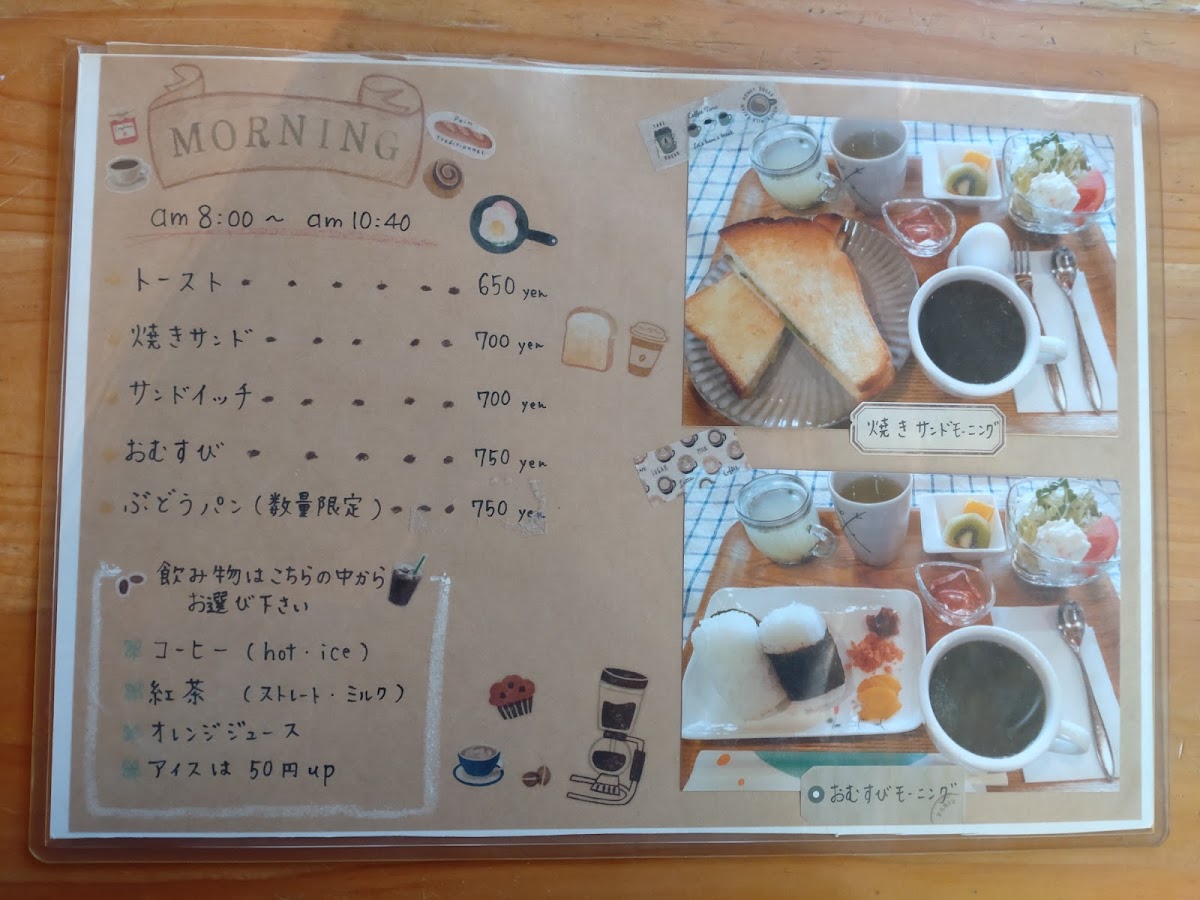 MORNING
am 8:00 ～ am 10:40
トースト ・・・・・ 650 yen
焼きサンド ・・・・・ 700 yen
サンドイッチ ・・・・・ 700 yen
おむすび ・・・・・ 750 yen
ぶどうパン (数量限定) ・・・ 750 yen
飲み物はこちらの中から
お選び下さい
コーヒー (hot・ice)
紅茶 (ストレート・ミルク)
オレンジジュース
アイスは 50円up
Pain
Traditionnel
TAKE
BREAK
Coffee Time
Let's have a break
焼きサンドモーニング
SUGAR
MILK
Coffee
おむすびモーニング